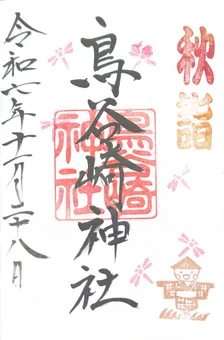 秋詣
鳥谷崎神社
鳥谷崎神社
令和六年十一月二十八日